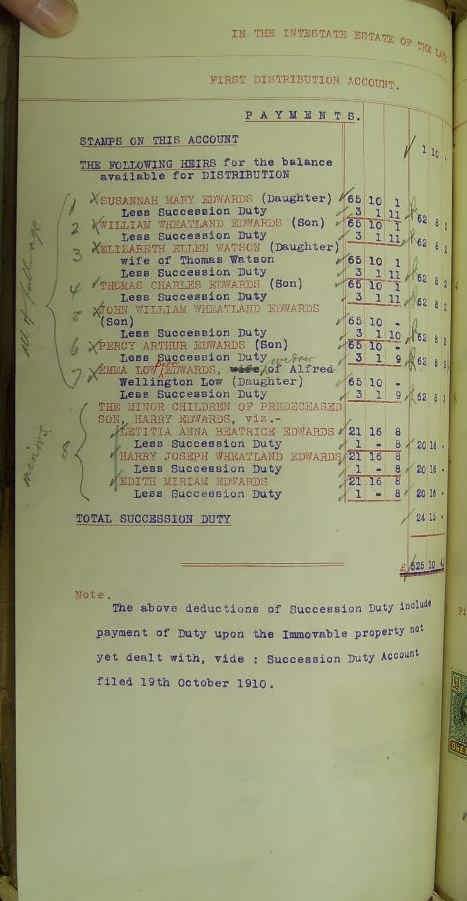 IN THE INTESTATE ESTATE OF THE LATE
FIRST DISTRIBUTION ACCOUNT.
PAYMENTS.
STAMPS ON THIS ACCOUNT 1 10 -
THE FOLLOWING HEIRS for the balance
available for DISTRIBUTION
1 SUSANNAH MARY EDWARDS (Daughter) 65 10 1
Less Succession Duty 3 1 11 62 8 2
2 WILLIAM WHEATLAND EDWARDS (Son) 65 10 1
Less Succession Duty 3 1 11 62 8 2
3 ELIZABETH ELLEN WATSON (Daughter)
wife of Thomas Watson 65 10 1
Less Succession Duty 3 1 11 62 8 2
4 THOMAS CHARLES EDWARDS (Son) 65 10 1
Less Succession Duty 3 1 11 62 8 2
5 JOHN WILLIAM WHEATLAND EDWARDS
(Son) 65 10 -
Less Succession Duty 3 1 10 62 8 2
6 PERCY ARTHUR EDWARDS (Son) 65 10 -
Less Succession Duty 3 1 9 62 8 3
7 EMMA LOW EDWARDS, wife of Alfred
Wellington Low (Daughter) 65 10 -
Less Succession Duty 3 1 9 62 8 3
all of full age
THE MINOR CHILDREN OF PREDECEASED
SON, HARRY EDWARDS, viz.-
LETITIA ANNA BEATRICE EDWARDS 21 16 8
Less Succession Duty 1 - 8 20 16 -
HARRY JOSEPH WHEATLAND EDWARDS 21 16 8
Less Succession Duty 1 - 8 20 16 -
EDITH MIRIAM EDWARDS 21 16 8
Less Succession Duty 1 - 8 20 16 -
minors
8
TOTAL SUCCESSION DUTY 24 15 -
£ 525 10 4
Note.
The above deductions of Succession Duty include
payment of Duty upon the Immovable property not
yet dealt with, vide : Succession Duty Account
filed 19th October 1910.